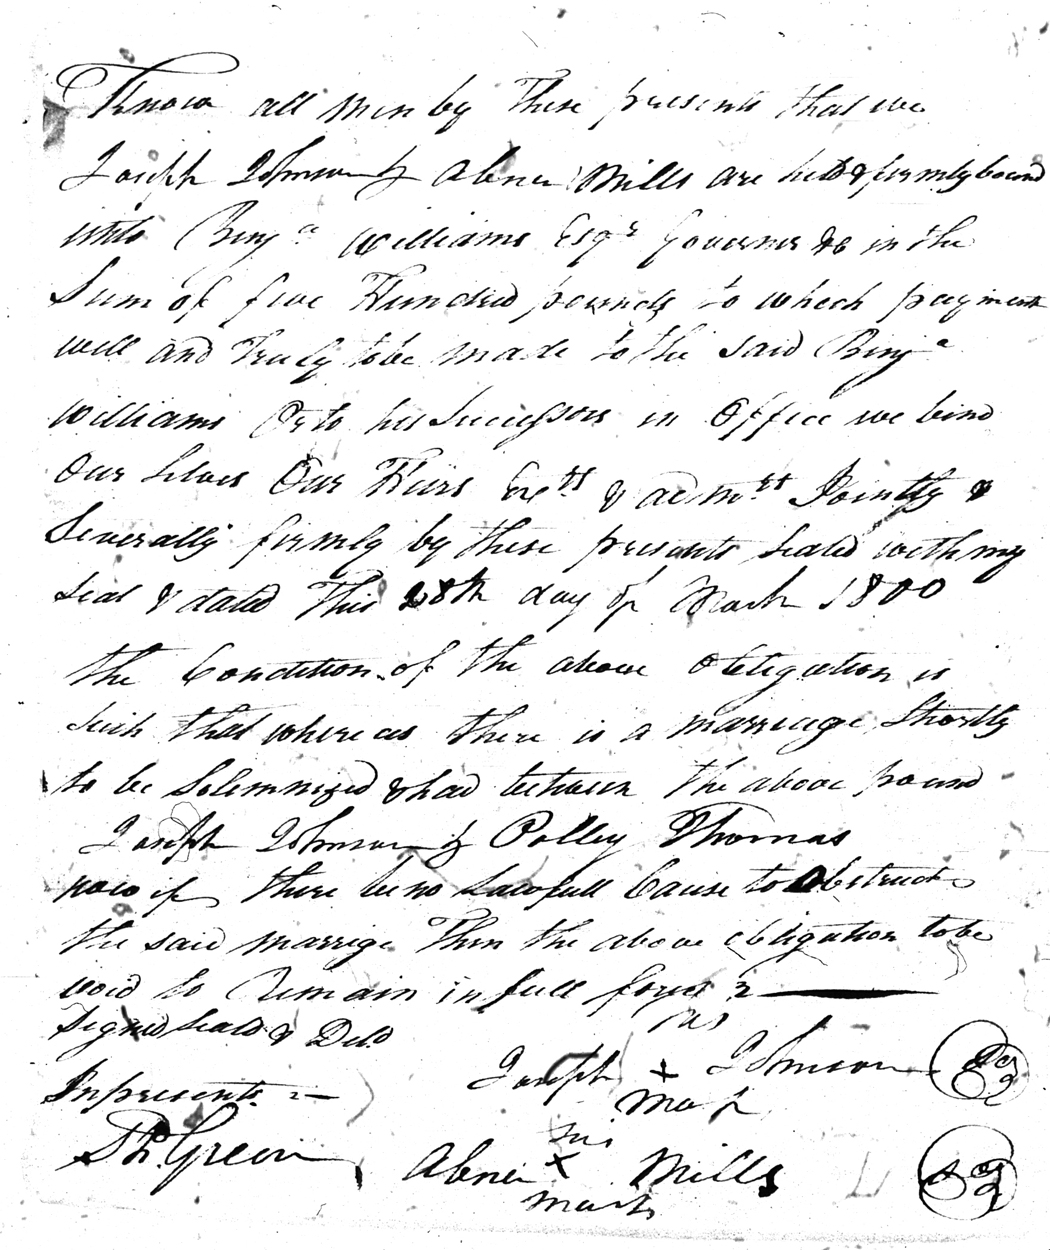 Know all men by These presents that we
Joseph Johnson & Abner Mills are held & firmly bound
unto Benjᵃ Williams Esqʳ Governer &c in the
Sum of five Hundred pounds to which payment
well and truly to be made to the said Benjᵃ
Williams Or to his Successors in Office we bind
Our Selves Our Heirs Exeᵗˢ & admˢᵗ Jointly &
Severally firmly by these presents Sealed with my
seal & dated This 28th day of March 1800
the Condition of the above obligation is
such that where as there is a marriage Shortly
to be Solemnized & had between the above pound
Joseph Johnson & Polley Thomas
now if there be no Lawfull Cause to Obstruct
the said marrige Then the above obligation to be
void to Remain in full force
Signed Seald & Deld
In presents
his
Joseph x Johnson
mark
Green
his
Abner x Mills
mark